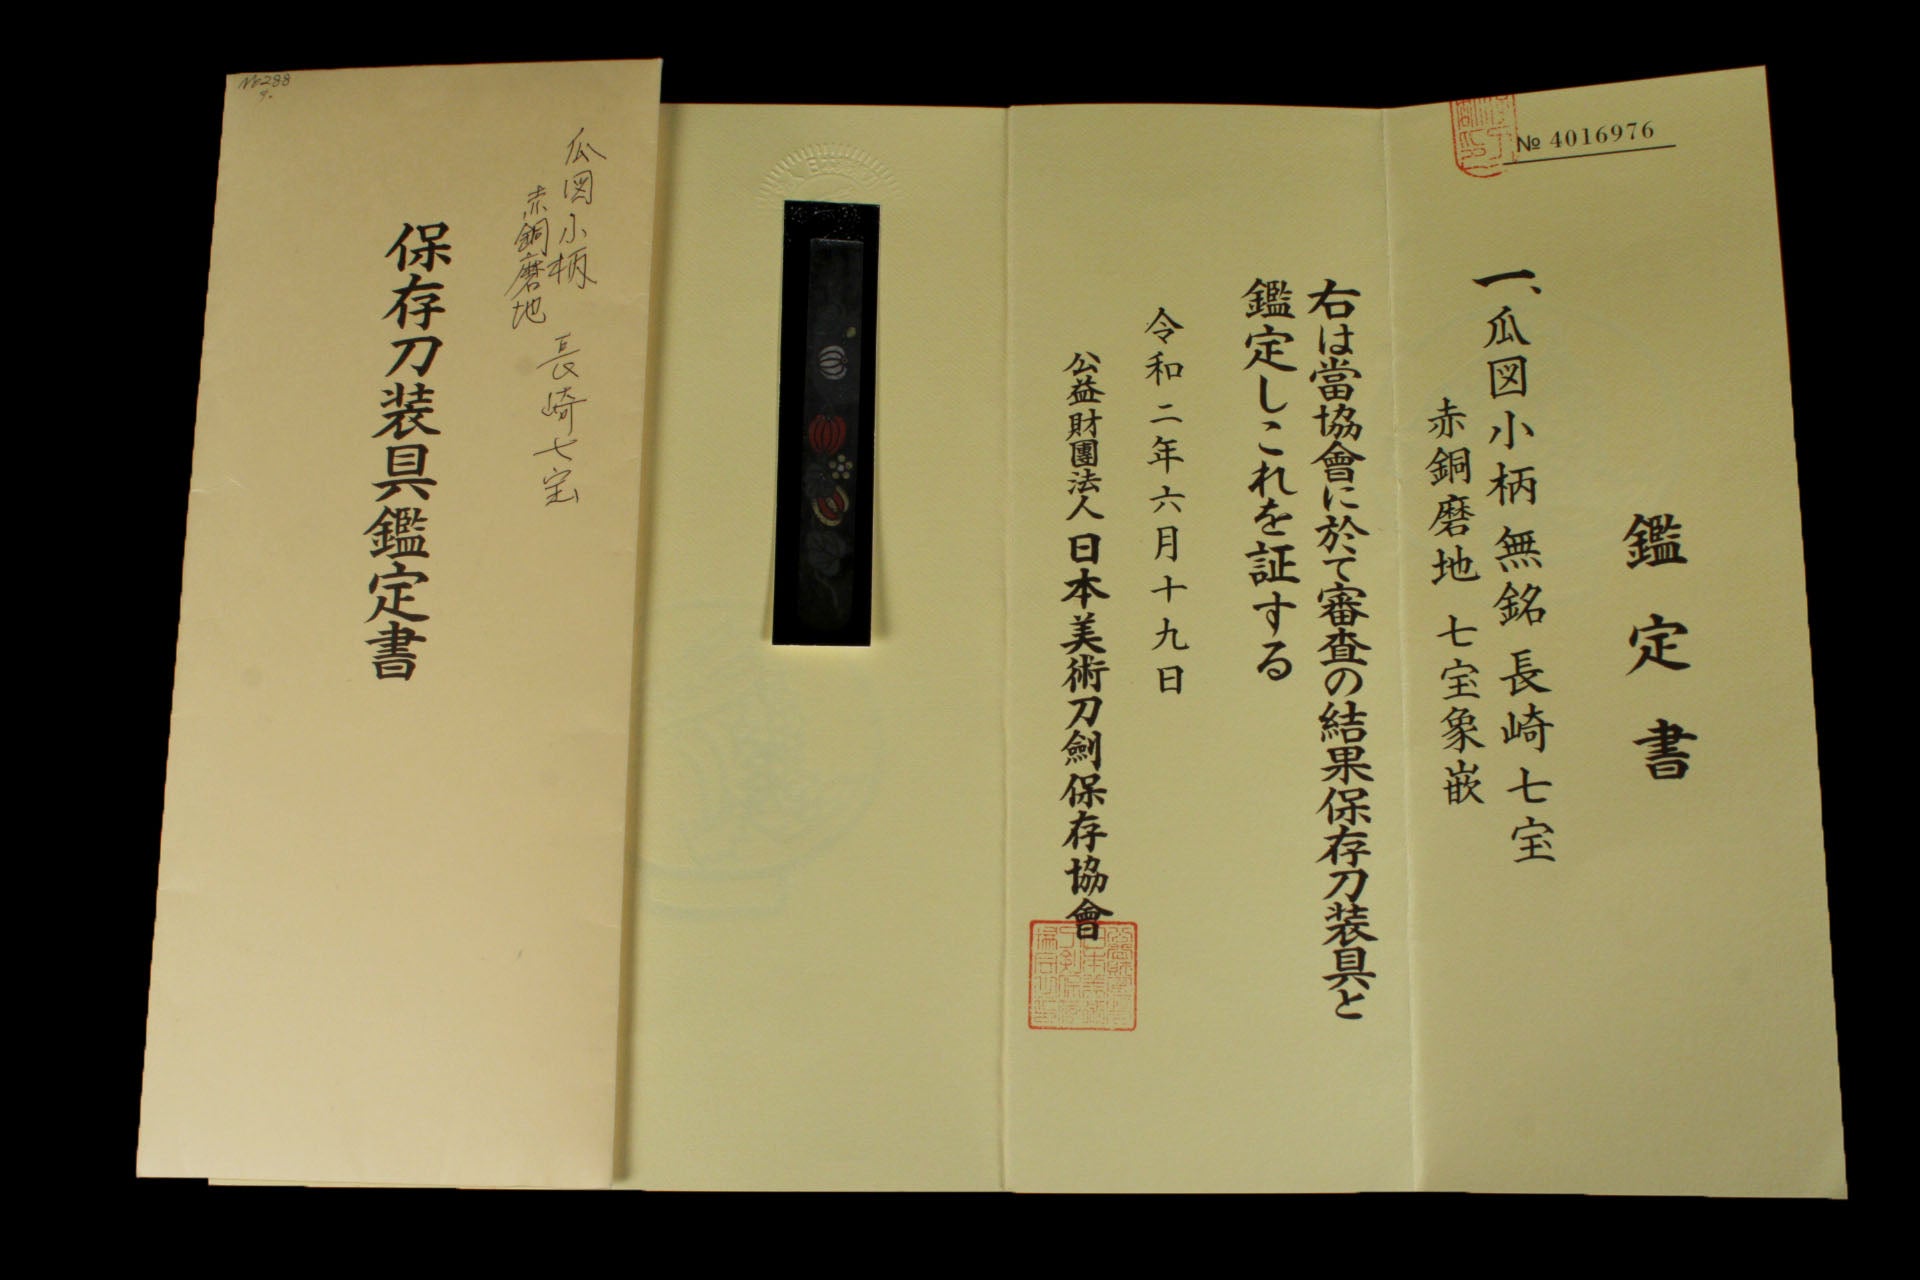 № 4016976
鑑定書
一、瓜図小柄 無銘 長崎七宝
赤銅磨地 七宝象嵌
右は當協會に於て審査の結果保存刀装具と
鑑定しこれを証する
令和二年六月十九日
公益財團法人 日本美術刀劍保存協會
№288
瓜図小柄 長崎七宝
赤銅磨地
保存刀装具鑑定書